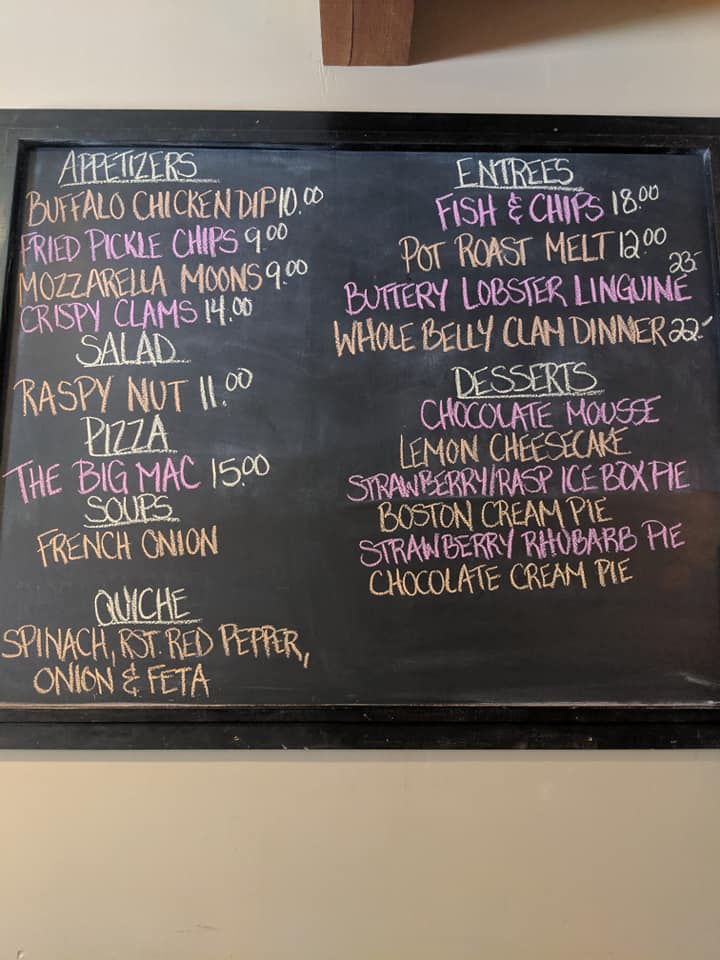 APPETIZERS
BUFFALO CHICKEN DIP 10.00
FRIED PICKLE CHIPS 9.00
MOZZARELLA MOONS 9.00
CRISPY CLAMS 14.00
SALAD
RASPY NUT 11.00
PIZZA
THE BIG MAC 15.00
SOUPS
FRENCH ONION
QUICHE
SPINACH, RST. RED PEPPER,
ONION & FETA
ENTREES
FISH & CHIPS 18.00
POT ROAST MELT 12.00
BUTTERY LOBSTER LINGUINE 23-
WHOLE BELLY CLAM DINNER 22.-
DESSERTS
CHOCOLATE MOUSSE
LEMON CHEESECAKE
STRAWBERRY/RASP ICE BOX PIE
BOSTON CREAM PIE
STRAWBERRY RHUBARB PIE
CHOCOLATE CREAM PIE